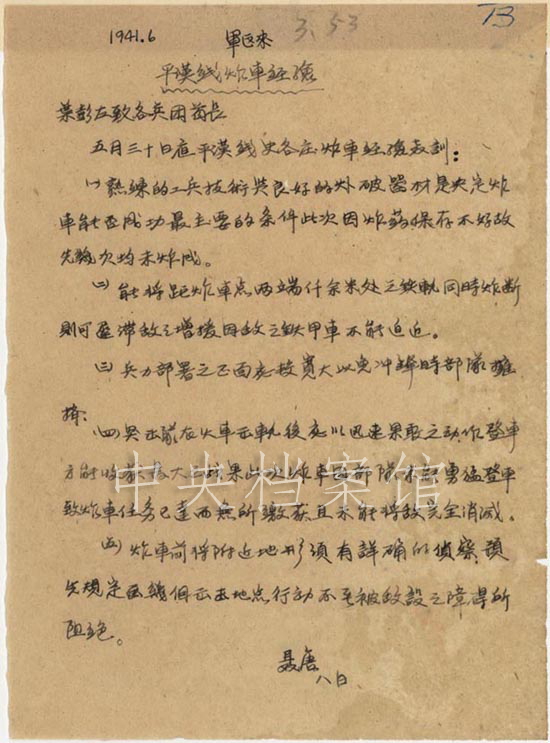 3.53
73
1941.6 軍区来
平漢线炸車经验
葉彭左致各兵团首長
五月三十日在平漢线史各庄炸車经验教訓：
㈠熟練的工兵技術與良好的炸破器材是决定炸
車能否成功最主要的条件此次因炸藥保存不好故
先幾次均未炸成。
㈡能将距炸車点两端仟余米处之鉄軌同時炸断
則可遲滞敌之增援因敌之鉄甲車不能迫近。
㈢兵力部署之正面应较寬大以免冲鋒時部隊擁
擠。
㈣突击隊在火車出軌後应以迅速果敢之动作登車
方能收获極大战果此次炸車部隊未能勇猛登車
致炸車任务已達而無所繳获且未能将敌完全消滅。
㈤炸車前将附近地形須有詳确的侦察預
先規定画幾個出击地点行动不至被敌設之障碍所
阻绝。
聶唐
八日
中央档案馆